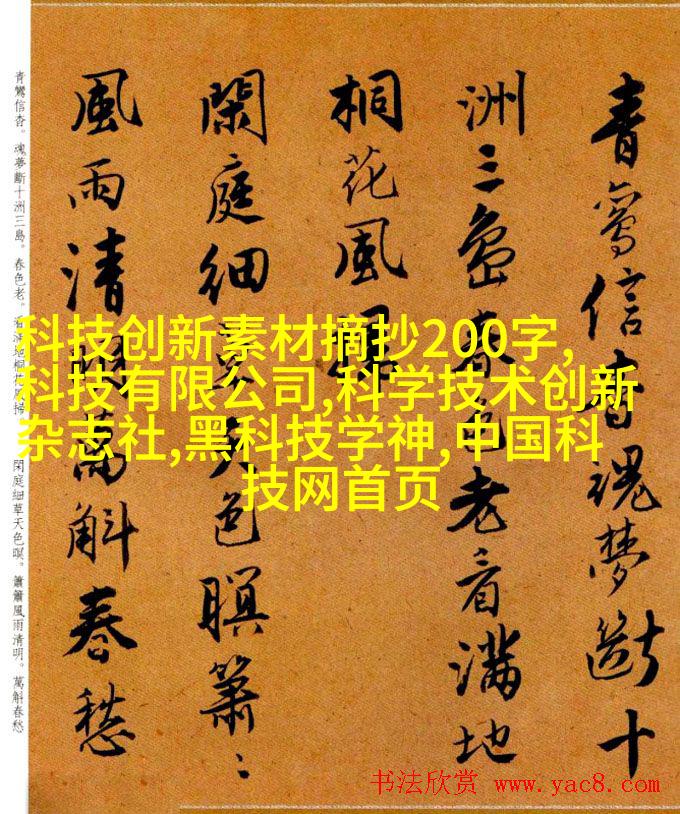 青鸞信杳魂夢斷十
洲三島春色老看滿地
桐花風掃
閑庭細草天色暝簫〻
風雨清明萬斛春愁
青鸞信杳。魂夢斷十洲三島。春色老。看滿地桐花風掃
閑庭細草天色暝。簫簫風雨清明。萬斛春愁
科技创新素材摘抄200字,
科技有限公司,科学技术创新
杂志社,黑科技学神,中国科
技网首页
书法欣赏 www.yac8.com